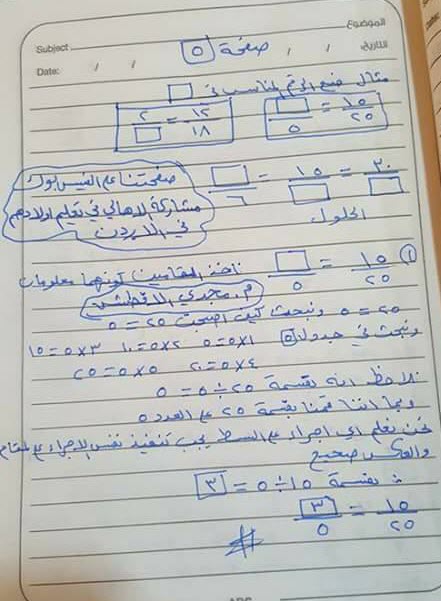 الموضوع:
Subject:
صفحة ٥
التاريخ: / /
Date: / /
مثال ضع الرقم المناسب في □
□/٥ = ١٥/٢٥
٢/□ = ١٢/١٨
□/٦ = ١٥/□ = ٣٠/□
صفحتنا عم الفيس بوك
مشاركة الاهالي في تعليم اولادهم
في الاردن
الحلول
١) □/٥ = ١٥/٢٥
نأخذ المقامين كونهما معلومات
م. مجدي
٢٥ = ٥ ونبحث كيف اصبحت ٢٥ = ٥
ونبحث في جدول ٥ ١×٥=٥ ٢×٥=١٠ ٣×٥=١٥
٤×٥=٢٠ ٥×٥=٢٥
نلاحظ انه بقسمة ٢٥÷٥ = ٥
وبما اننا قمنا بقسمة ٢٥ عم العدد ٥
نحن نعلم اي اجراء عم البسط يجب تنفيذ نفس الاجراء عم المقام
والعكس صحيح
بقسمة ١٥÷٥ = ٣
٣/٥ = ١٥/٢٥